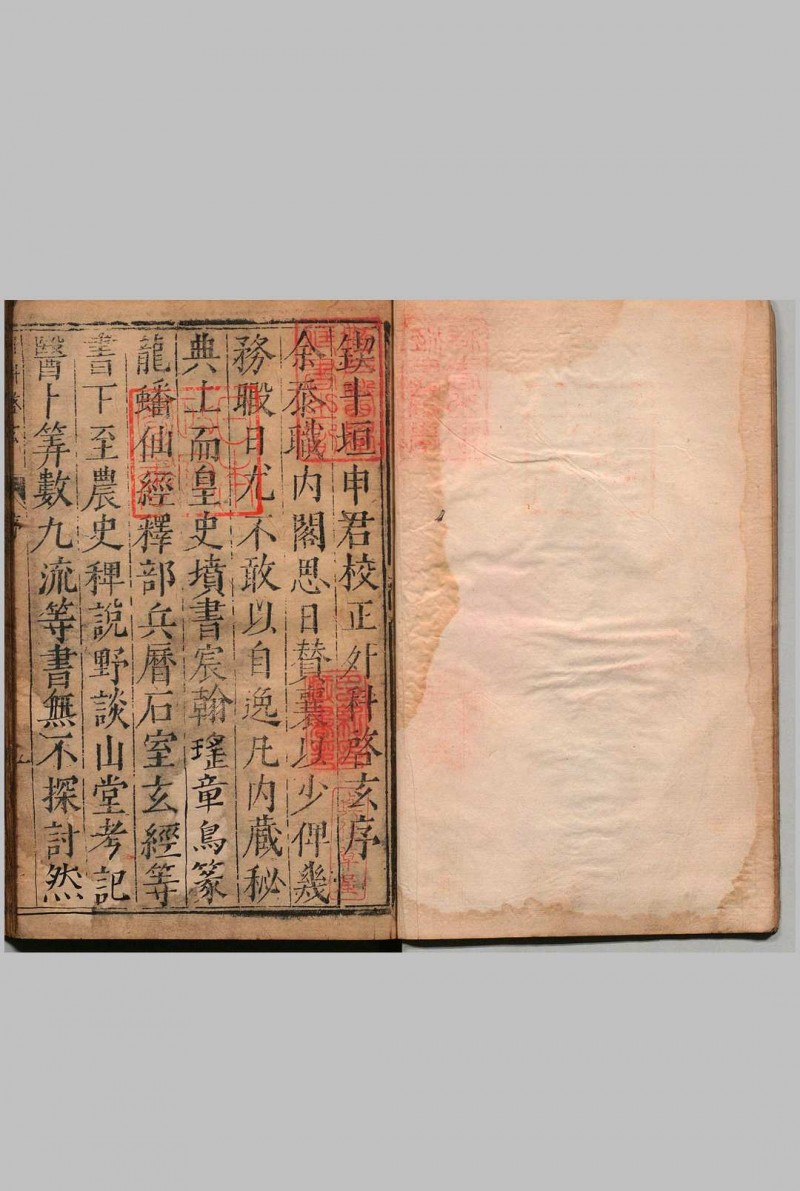 鍥斗垣申君校正外科啓玄序
余忝職内閣思日賛襄以少俾幾
務職日尤不敢以自逸凡内蔵秘
典上而皇史墳書宸翰瑤章鳥篆
龍蟠仙經釋部兵曆石室玄經等
書下至農史稗説野談山堂考記
醫卜筭數九流等書無不探討然